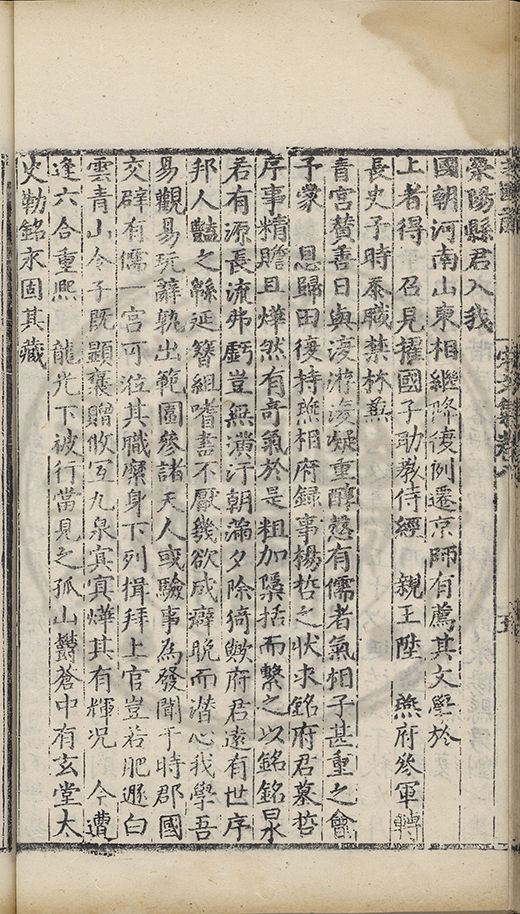 滎陽縣君入我
國朝河南山東相繼降復例遷京師有薦其文學於
上者得　召見擢國子助教侍經　親王陞　燕府叅軍轉
長史予時忝職禁林兼
青宮贊善日與浚游浚凝重醇慤有儒者氣怕予甚重之會
予蒙　恩歸田復持燕相府録事楊哲之狀求銘府君墓哲
序事精贍且燁然有奇氣於是粗加櫽括而繫之以銘銘曰
若有源長流弗虧豈無潢汙朝滿夕除猗歟府君遠有世序
邦人豔之緜延簪組嗜書不厭幾欲成癖晚而潜心我學吾
易觀易玩辭軌出範圍參諸天人或驗事為發聞于時郡國
交辟有儒一宮可涖其職縻身下列揖拜上官豈若肥遯白
雲青山令子既顯褒贈攸宜九泉㝠㝠燁其有輝况　今遭
逢六合重熙　龍光下被行當見之孤山鬱蒼中有玄堂太
史勒銘永固其藏